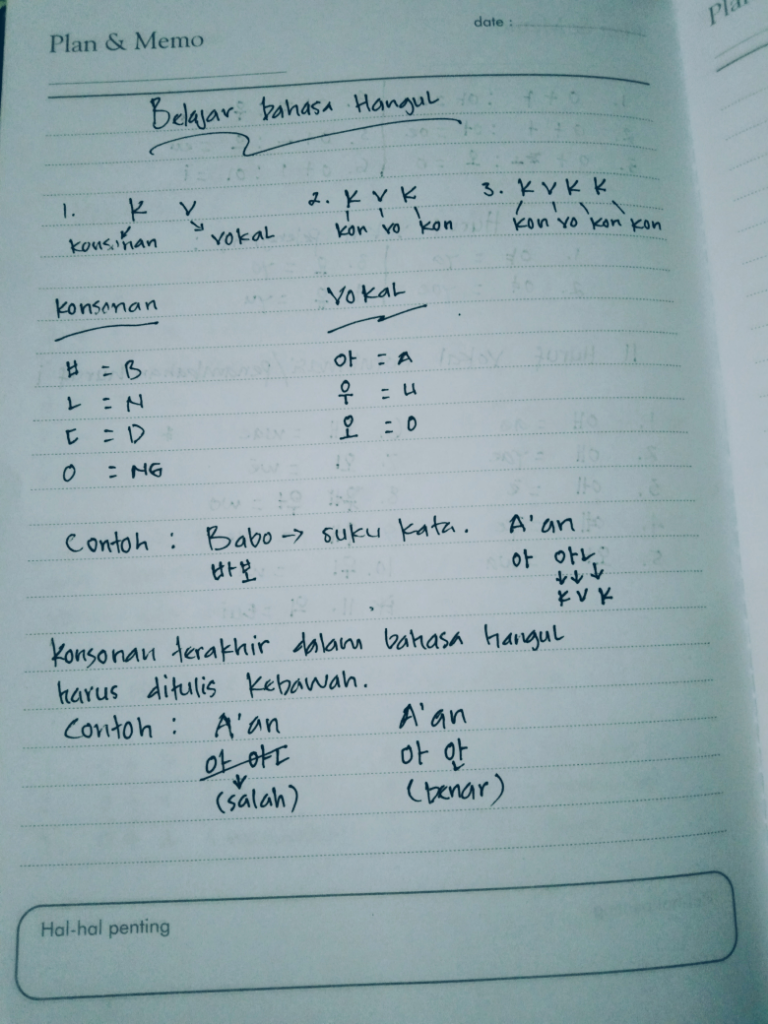 Plan & Memo
date :
Belajar bahasa Hangul
1. K V
konsinan vokal
2. K V K
kon vo kon
3. K V K K
kon vo kon kon
Konsonan
Vokal
ㅂ = B
ㄴ = N
ㄷ = D
ㅇ = NG
아 = A
우 = U
오 = O
Contoh : Babo → suku kata. A'an
바보
아 아ㄴ
K V K
Konsonan terakhir dalam bahasa hangul
harus ditulis kebawah.
Contoh : A'an A'an
아 아ㄷ 아 안
(salah) (benar)
Hal-hal penting